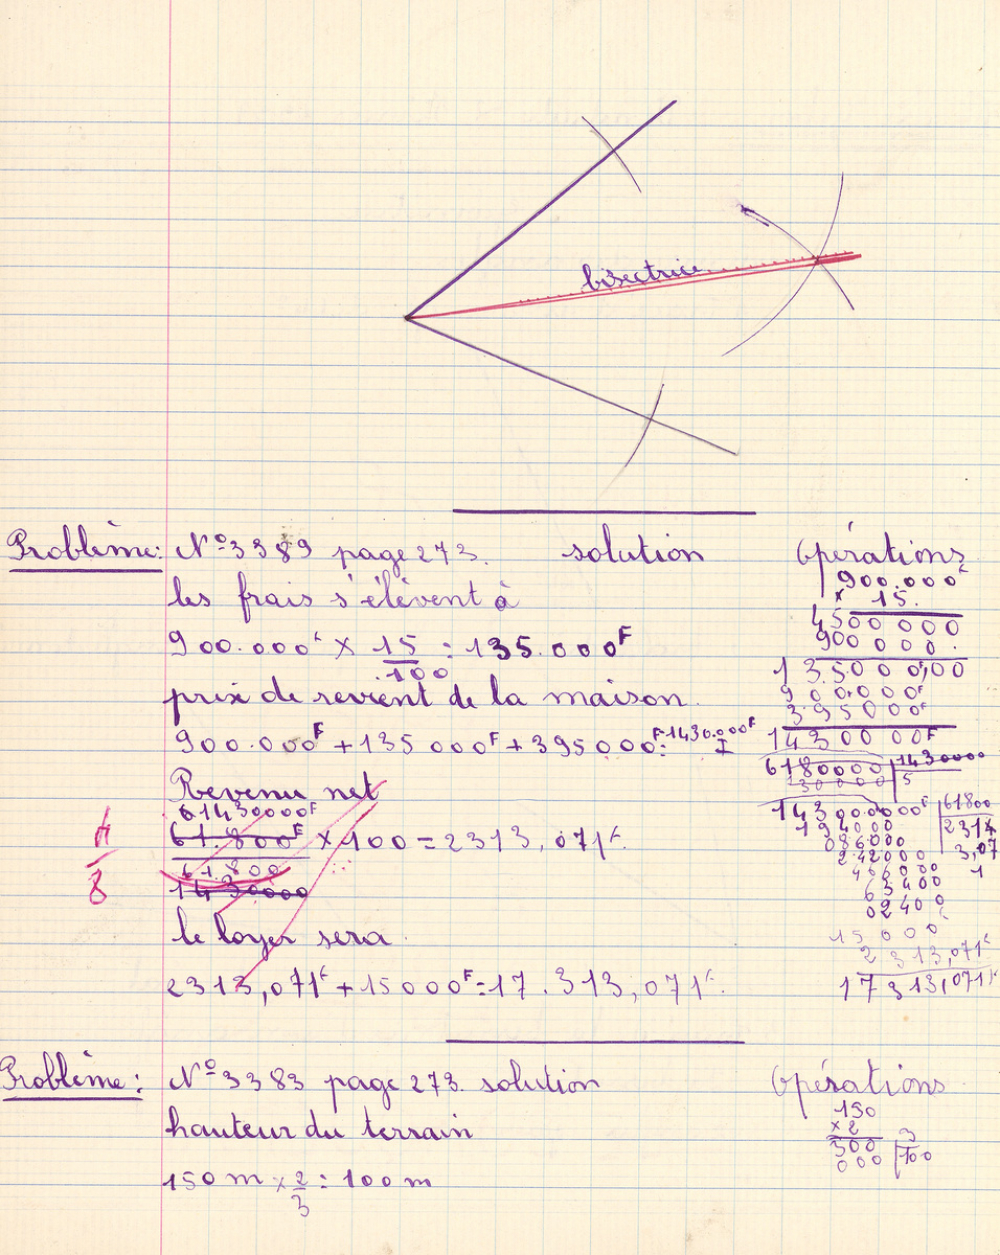 bisectrice
Problème: N° 3389 page 273. solution
les frais s'élèvent à
900.000F × 15/100 = 135.000F
prix de revient de la maison.
900.000F + 135000F + 395000F = 1430.000F
Revenu net
61430000F
61.800F × 100 = 2313,071F.
61.800
1430000
4/8
le loyer sera.
2313,071F + 15000F = 17.313,071F.
Opérations
900.000F
× 15.
4500000
900000.
13500000
900.000F
395000F
1430000F
6180000 | 1430000
130000 | 5
143000000F | 61800
194000 | 2314
086000 | 3,07
242000 | 1
466000
63400
02400
15000
2313,071F
17313,071F
Problème: N° 3383 page 273. solution
hauteur du terrain
150 m × 2/3 = 100 m
Opérations
150
× 2
300 | 3
000 | 100